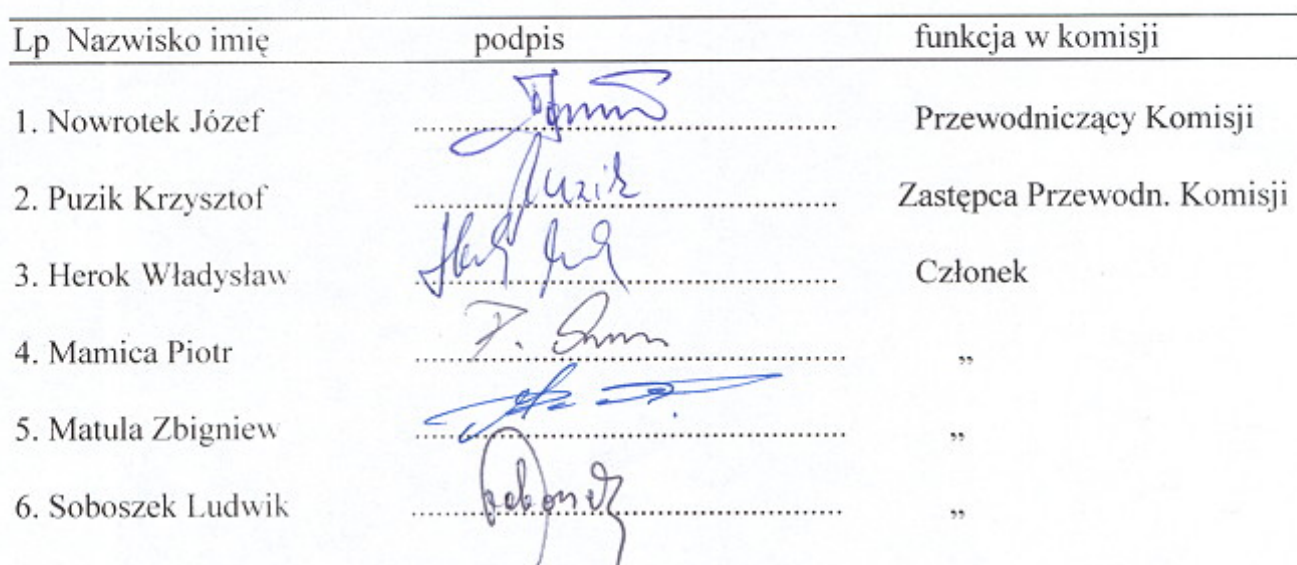 Lp Nazwisko imię podpis funkcja w komisji
1. Nowrotek Józef Przewodniczący Komisji
2. Puzik Krzysztof Puzik Zastępca Przewodn. Komisji
3. Herok Władysław Członek
4. Mamica Piotr P. „
5. Matula Zbigniew „
6. Soboszek Ludwik „